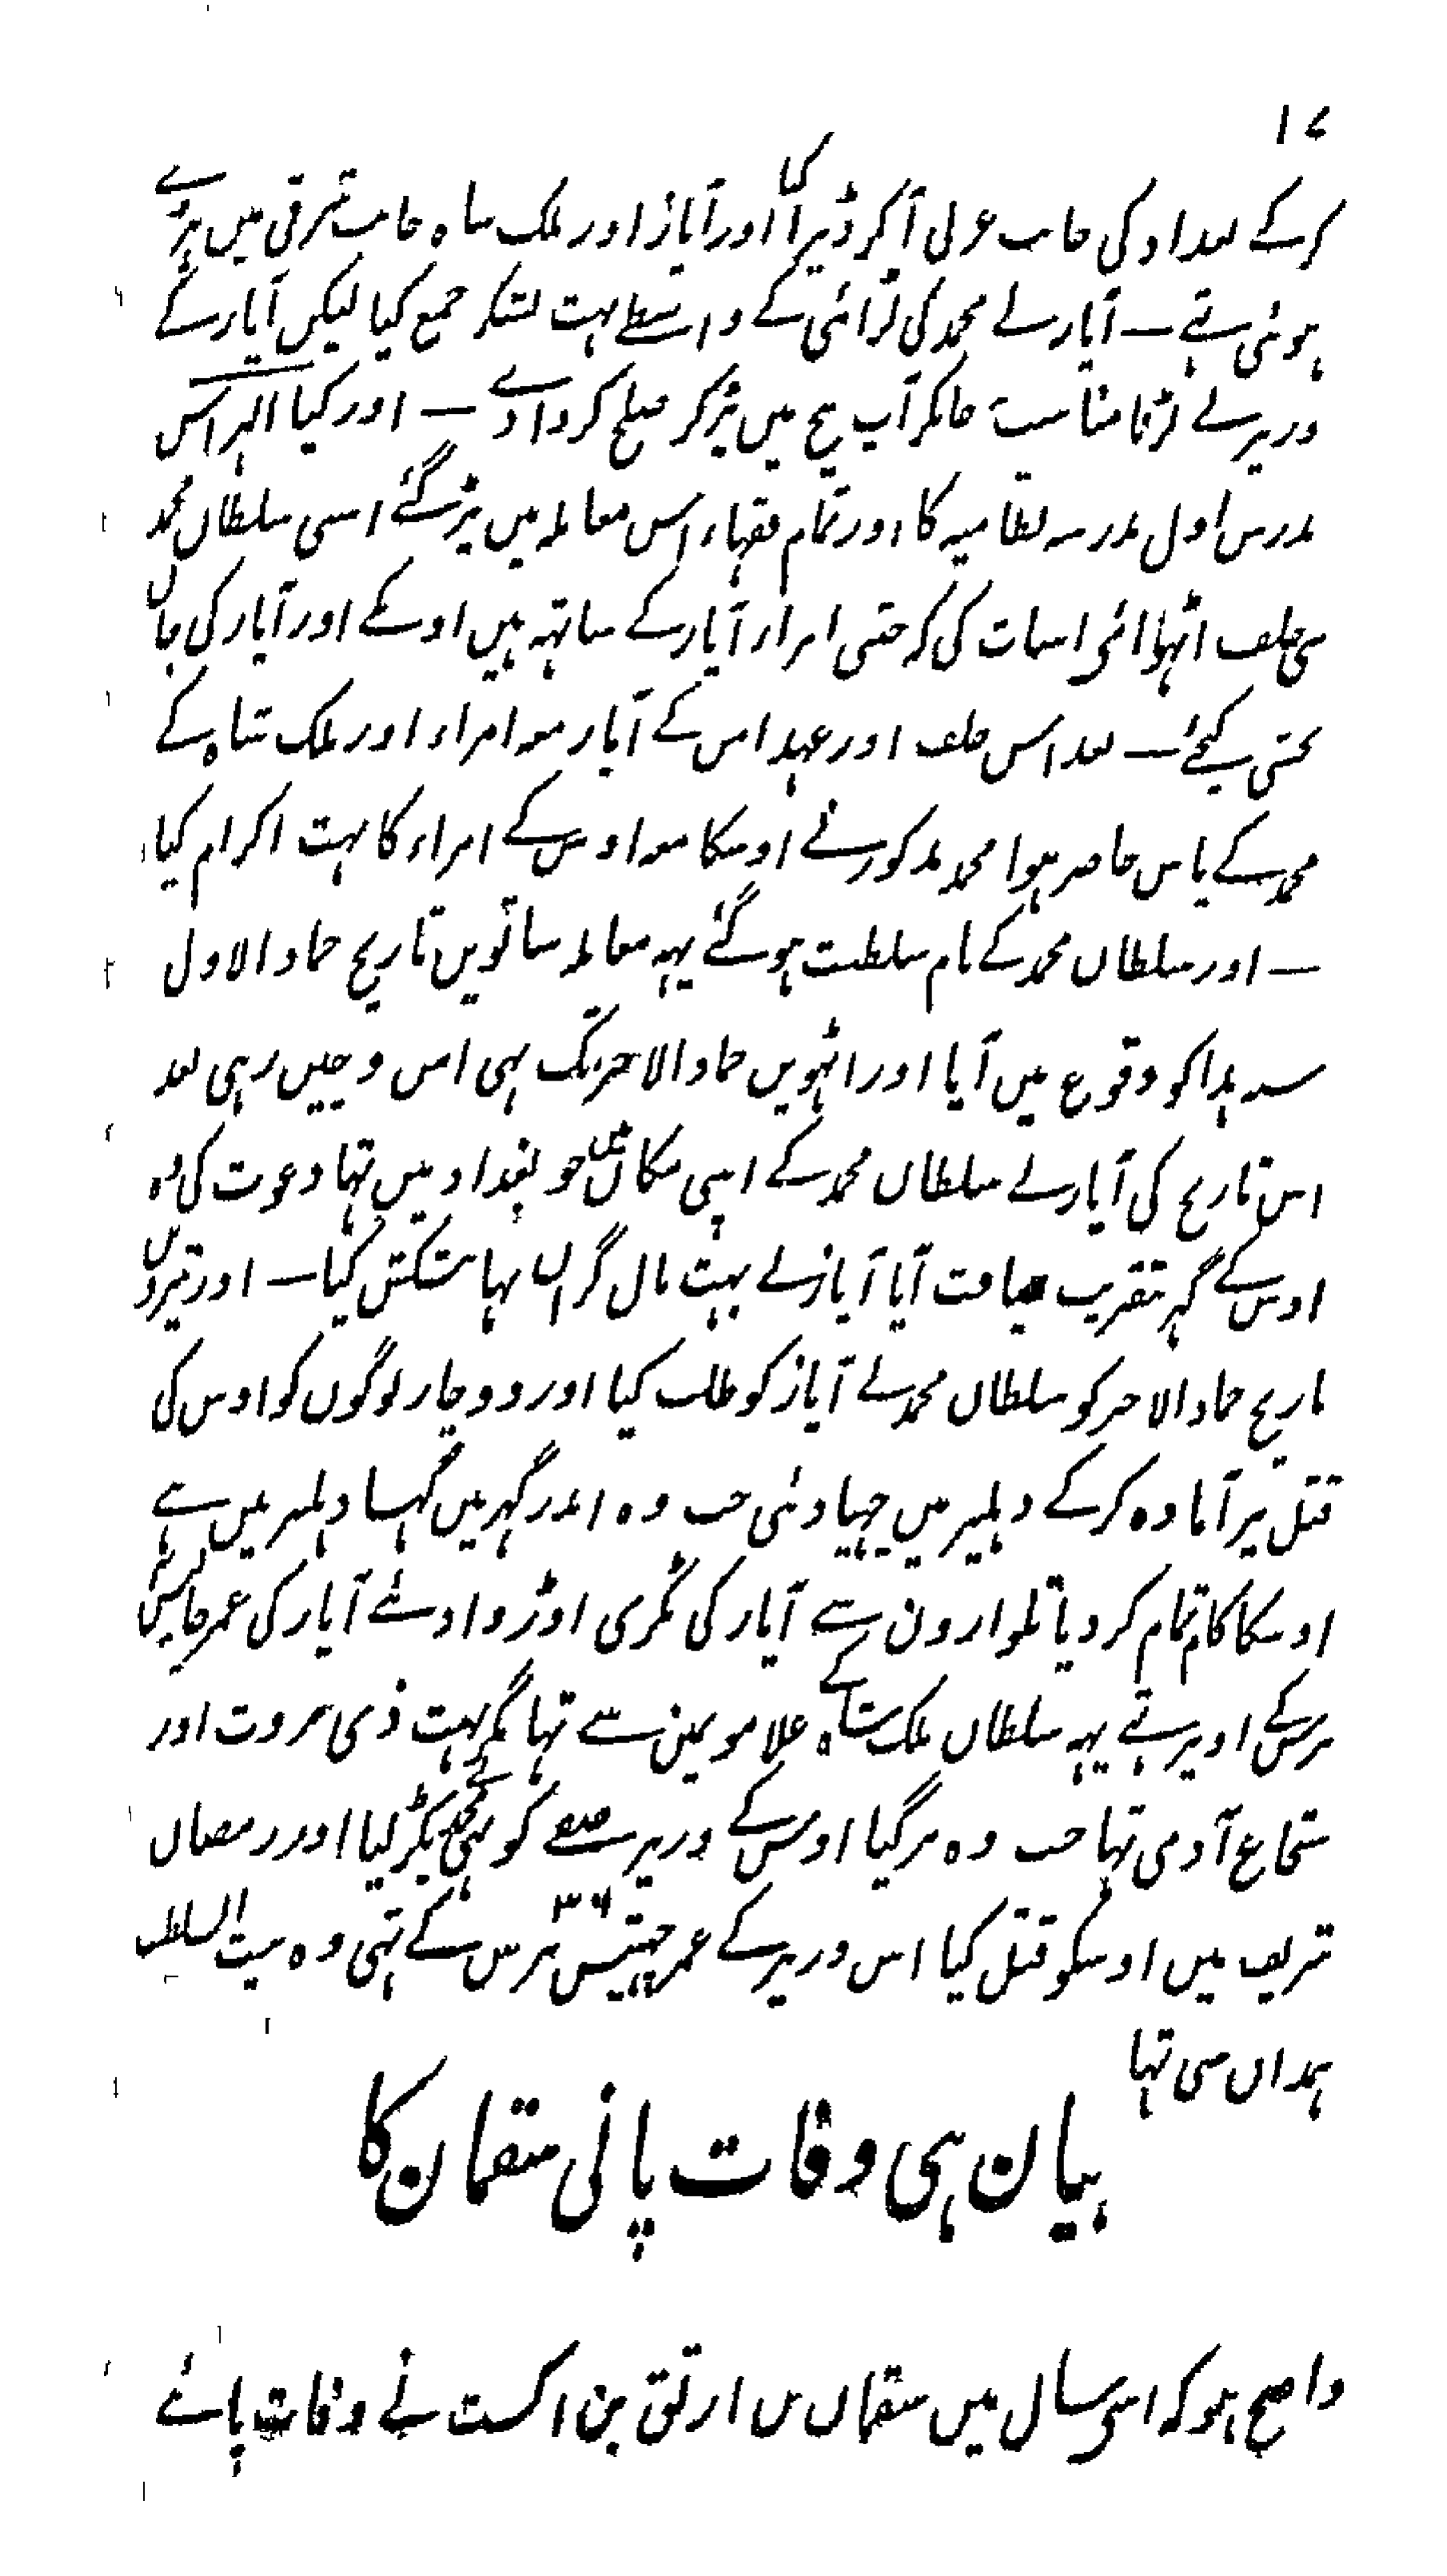 ۱۷
کرکے بغداد کی جانب غربی آکر ڈیرا کیا اور آیاز اور ملک شاہ جانب شرقی میں پڑے
ہوئی تہے — آیاز نے محمد کی لڑائی کے واسطے بہت لشکر جمع کیا لیکن آیاز کے
وزیر نے لڑنا مناسب جانکر آپ بیچ میں پڑکر صلح کروا دے — اور کیا الہراس
مدرس اول مدرسہ نظامیہ کا اور تمام فقہاء اس معاملہ میں پڑگئے اسی سلطان محمد
سی حلف اٹہوائی اسبات کی کہ جتنی امراء آیاز کے ساتہہ ہیں اونکے اور آیاز کی جان
بخشی کیجئے — بعد اس حلف اور عہد اس کے آیاز معہ امراء اور ملک شاہ کے
محمد کے پاس حاضر ہوا محمد مذکور نے اوسکا معہ اوس کے امراء کا بہت اکرام کیا
— اور سلطان محمد کے نام سلطنت ہوگئے یہہ معاملہ ساتویں تاریخ جماد الاول
سنہ ہذا کو وقوع میں آیا اور اٹہویں جماد الاخر تک ہی امن و چین رہی بعد
اس تاریخ کی آیاز نے سلطان محمد کے اپنی مکان میں جو بغداد میں تہا دعوت کی وہ
اوس کے گہر بتقریب ضیافت آیا آیاز نے بہت مال گراں بہا پیشکش کیا — اور تیرویں
تاریخ جماد الاخر کو سلطان محمد نے آیاز کو طلب کیا اور دو چار لوگوں کو اوس کی
قتل پر آمادہ کرکے دہلیز میں چہپا دئی جب وہ اندر گہر میں گہسا دہلیز میں سے
اوسکا کام تمام کر دیا تلوارون سے آیاز کی ٹکڑی اوڑوا دئے آیاز کی عمر چالیس
برس کے اوپر تہے یہہ سلطان ملک شاہ کے غلامو میںن سے تہا مگر بہت ذی مروت اور
شجاع آدمی تہا جب وہ مرگیا اوس کے وزیر صفے کو بہی پکڑ لیا اور رمضان
شریف میں اوسکو قتل کیا اس وزیر کے عمر چہتیس ۳۶ برس کے تہی وہ بیت السلطنت
ہمدان سی تہا
بیان ہی وفات پانی سقمان کا
واضح ہو کہ اسی سال میں سقمان بن ارتق بن اکست نے وفات پائے